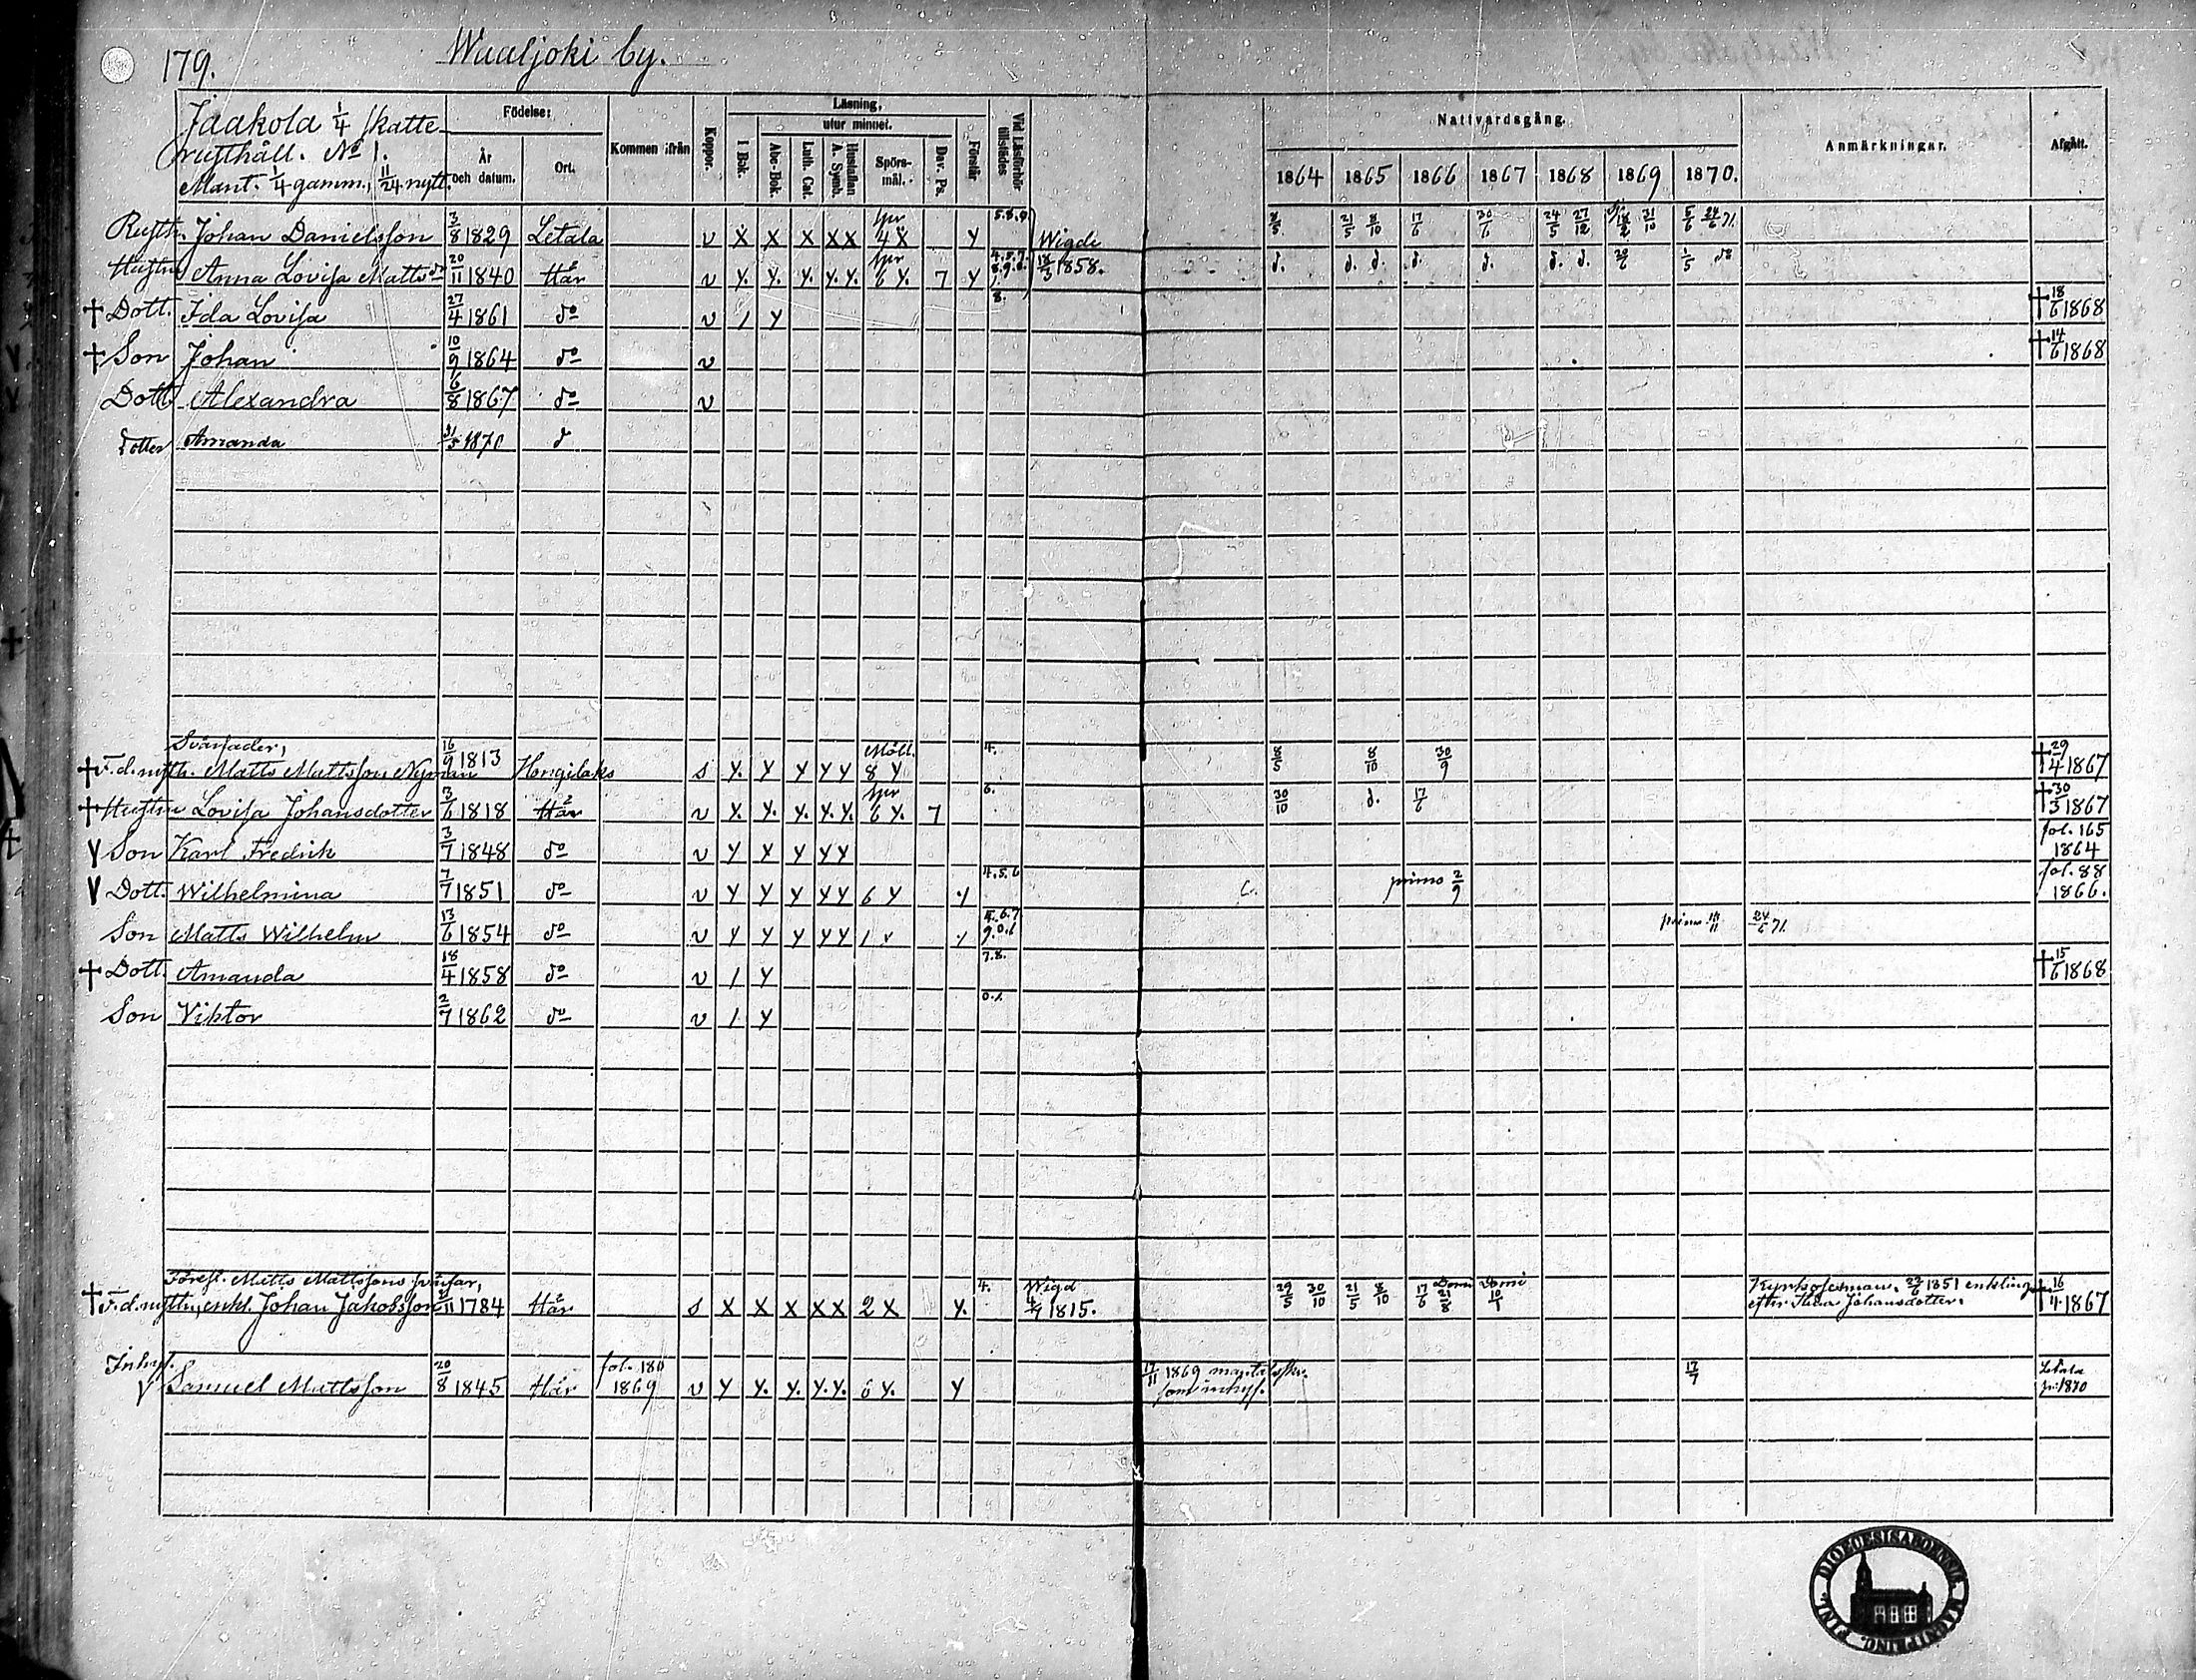 179.
Waaljoki by.
Jaakola 1/4 skatte
rusthåll. No 1.
Mant. 1/4 gamm., 11/24 nytt.
Födelse:
År och datum.
Ort.
Kommen ifrån
Koppor.
Läsning,
utur minnet.
I Bok.
Abc-Bok.
Luth. Cat.
Hustaflan A. Symb.
Spörsmål.
Dav. Ps.
Förstår
Vid Läsförhör tillstädes
Nattvardsgång.
1864 1865 1866 1867 1868 1869 1870.
Anmärkningar.
Afgått.
Rusth. Johan Danielsson 3/8 1829 Letala v X X X X X spr 4 X Y Wigde 8/5 21/5 8/10 17/6 30/6 24/5 27/12 31/10
Hustru Anna Lovisa Mattsdr 20/11 1840 Här v Y. Y. Y. Y. Y. spr 6 Y. 7 Y 1858. d. d. d. d. d. d. d.
† Dott. Ida Lovisa 27/4 1861 do v / Y 8. † 18/6 1868
† Son Johan 10/9 1864 do v † 14/6 1868
Dott Alexandra 6/8 1867 do v
Dotter Amanda 31/5 1870 d
Svärfader,
† F.d. rusth. Matts Mattsson Nyman 16/9 1813 Hongilaks s Y. Y Y Y Y Möll. 8 Y 4. 8/5 8/10 30/9 † 29/4 1867
† Hustru Lovisa Johansdotter 3/6 1818 Här v Y. Y. Y. Y. Y. spr 6 Y. 7 6. 30/10 d. 17/6 † 30/3 1867
V Son Karl Fredrik 3/7 1848 do v Y X Y Y Y fol. 165 1864
V Dott. Wilhelmina 7/7 1851 do v Y Y Y Y Y 6 Y Y 4.5.6 primo 2/9 fol. 88 1866.
Son Matts Wilhelm 13/6 1854 do v Y Y Y Y Y Y primo 24/6 71.
† Dott. Amanda 18/4 1858 do v / Y 7.8. † 15/6 1868
Son Viktor 2/7 1862 do v / Y
Föreg. Matts Mattssons svärfar,
† F.d. rusth., enkl. Johan Jakobsson 1784 Här s X X X X X 2 X Y. 4. Wigd 1815. 29/5 30/10 21/5 8/10 17/6 Domi Domi 10/1 22/6 1851 enkling efter Johansdotter. † 16/4 1867
Inhys.
V Samuel Mattsson 20/8 1845 Här fol. 180 1869 v Y Y. Y. Y. Y. 6 Y. Y 17/11 1869 mantalsskr. som inhys. 17/7 Letala 1870
DIOECESIS ABOENSIS MAGNI PRINC. FINL.